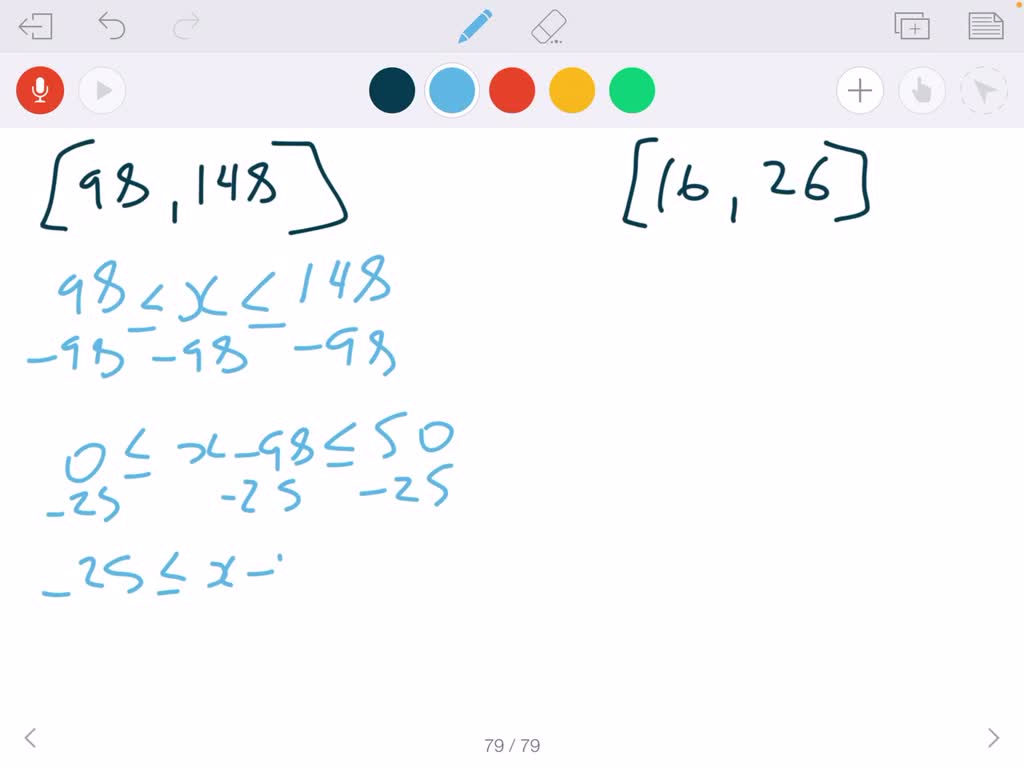 [98, 148]
[16, 26]
98 ≤ x ≤ 148
-98 -98 -98
0 ≤ x - 98 ≤ 50
-25 -25 -25
-25 ≤ x -
79 / 79